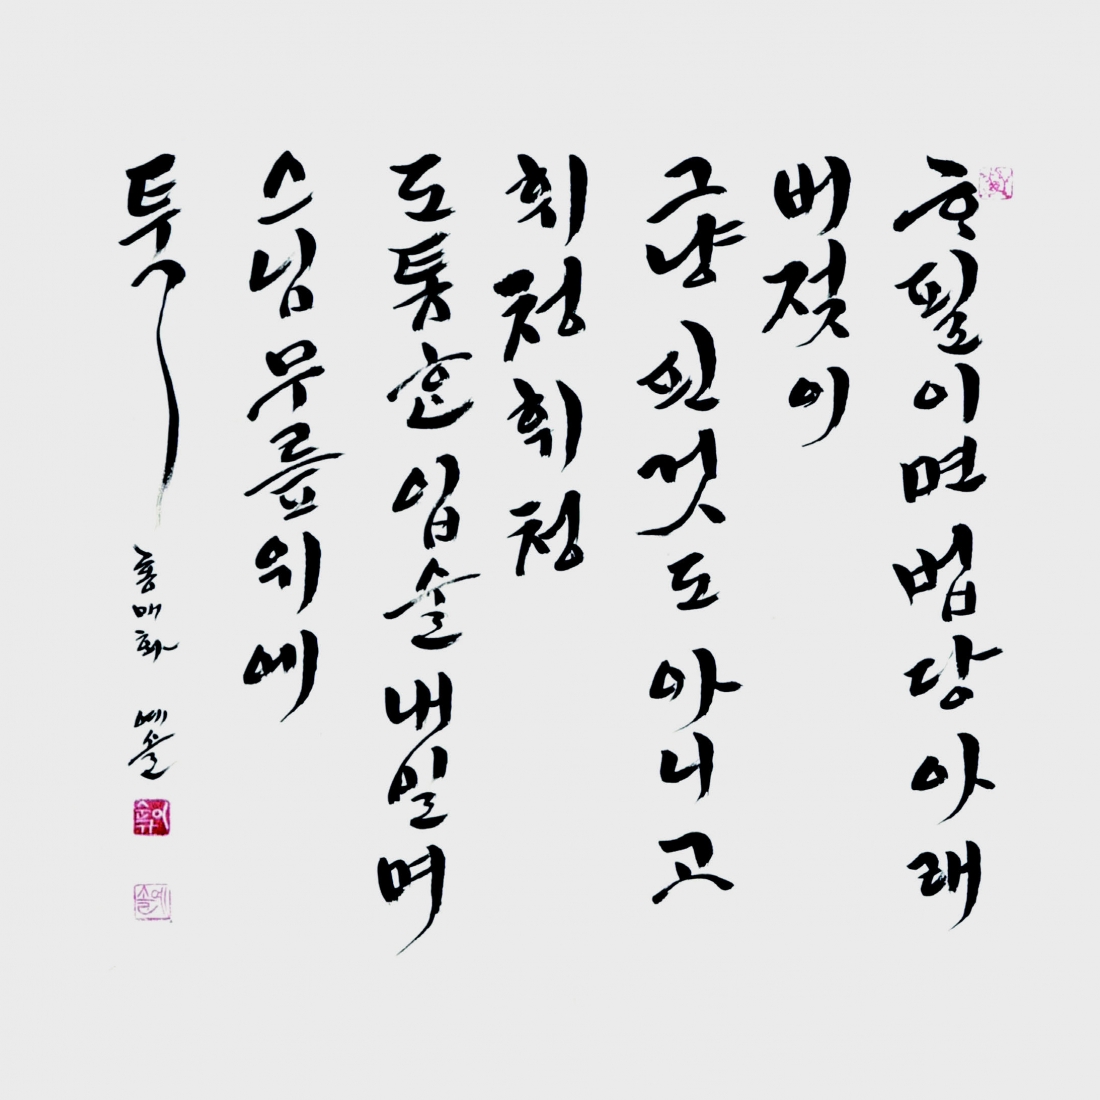 하필이면 법당 아래
버젓이
그냥 핀 것도 아니고
휘청휘청
도통한 입술 내밀며
스님 무릎 위에
툭
홍매화 예솔